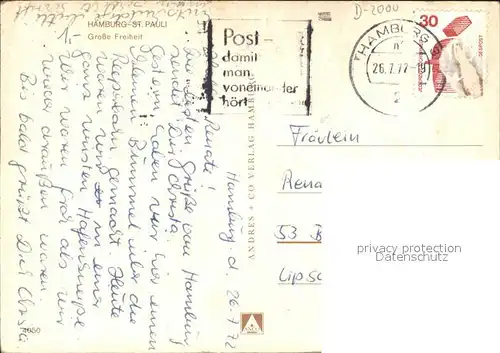 HAMBURG-ST. PAULI
Große Freiheit
D-2000
Post-
damit
man
voneinander
hört
HAMBURG
26.7.72
30
ANDRES + CO VERLAG HAMBURG
Hamburg d. 26.7.72
Renate!
Die besten Grüße von Hamburg
sendet Dir Christa.
Gestern haben wir hier einen
kleinen Bummel über die
Reeperbahn gemacht. Heute
waren wir in einer
ganz wüsten Hafenkneipe.
Wir waren froh als wir
wieder draußen waren.
Bis bald grüßt Dich Christa
Fräulein
Rena
53
Lipsc
privacy protection
Datenschutz